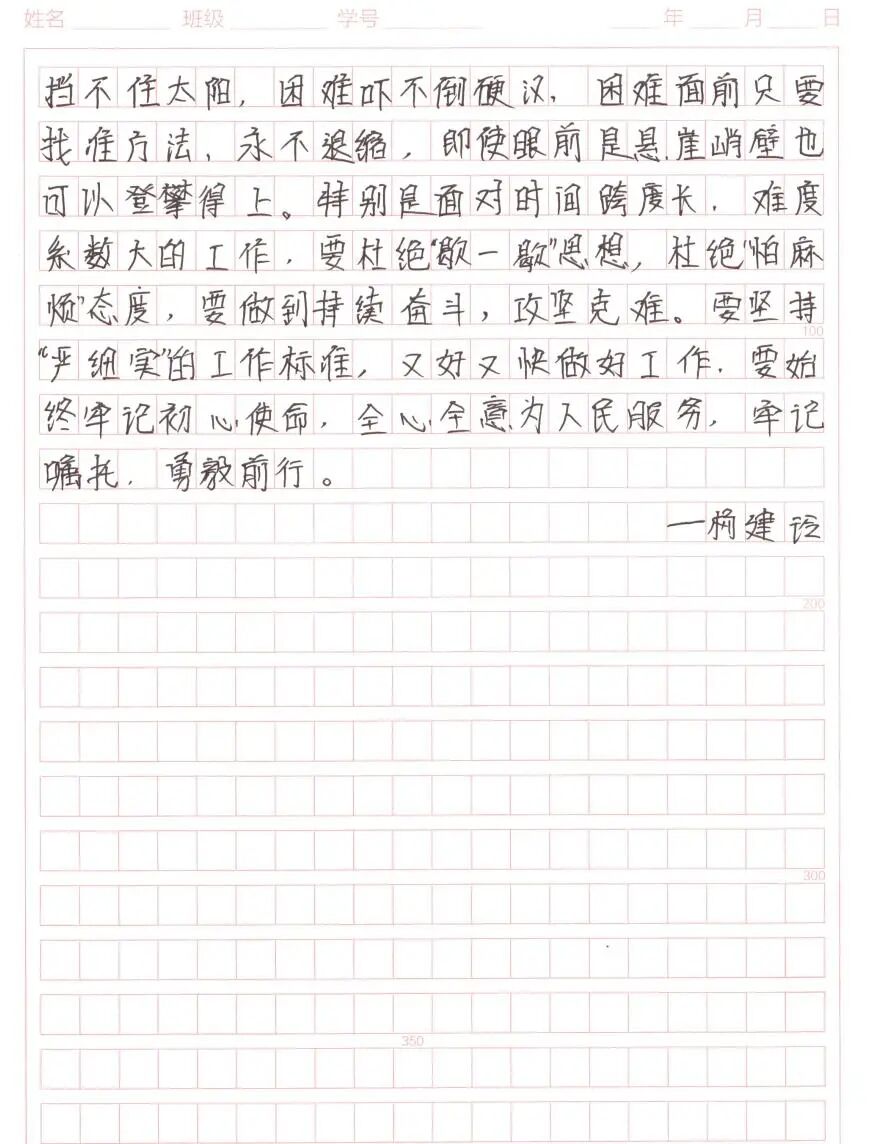 姓名 班级 学号 年 月 日
挡不住太阳，困难吓不倒硬汉，困难面前只要
找准方法、永不退缩，即使眼前是悬崖峭壁也
可以登攀得上。特别是面对时间跨度长、难度
系数大的工作，要杜绝“歇一歇”思想，杜绝“怕麻
烦”态度，要做到持续奋斗，攻坚克难。要坚持
100
“严细实”的工作标准，又好又快做好工作，要始
终牢记初心使命，全心全意为人民服务，牢记
嘱托，勇毅前行。
建
200
300
350